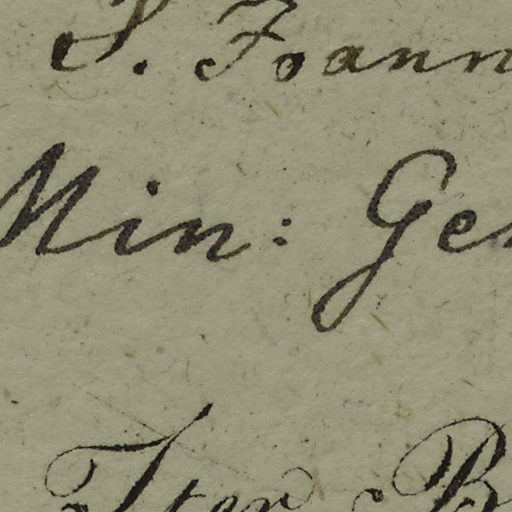 S. Joann
Min: Ge
Iter B